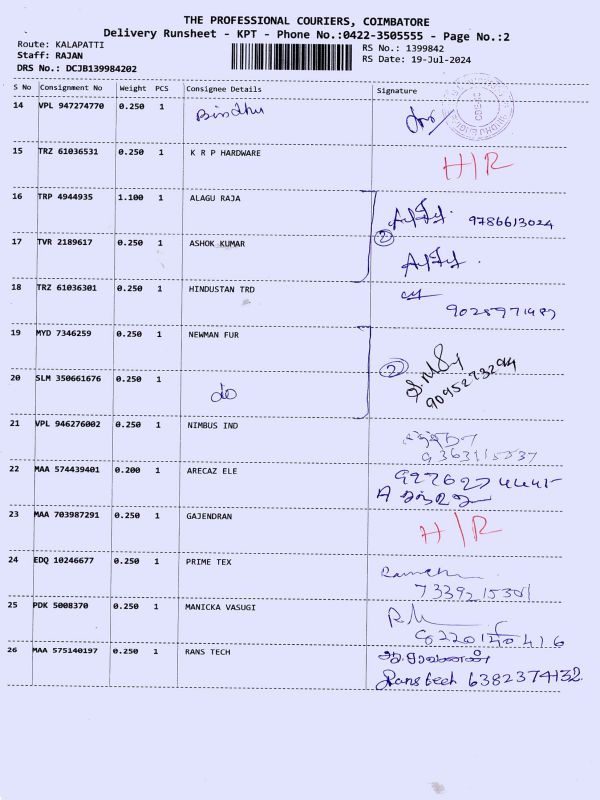 THE PROFESSIONAL COURIERS, COIMBATORE
Delivery Runsheet - KPT - Phone No.:0422-3505555 - Page No.:2
Route: KALAPATTI
Staff: RAJAN
DRS No.: DCJB139984202
RS No.: 1399842
RS Date: 19-Jul-2024
S No Consignment No Weight PCS Consignee Details Signature
14 VPL 947274770 0.250 1 Bindhu
15 TRZ 61036531 0.250 1 K R P HARDWARE H/R
16 TRP 4944935 1.100 1 ALAGU RAJA 9786613024
2
17 TVR 2189617 0.250 1 ASHOK KUMAR
18 TRZ 61036301 0.250 1 HINDUSTAN TRD
19 MYD 7346259 0.250 1 NEWMAN FUR
2
20 SLM 350661676 0.250 1 do
21 VPL 946276002 0.250 1 NIMBUS IND
22 MAA 574439401 0.200 1 ARECAZ ELE
23 MAA 703987291 0.250 1 GAJENDRAN H/R
24 EDQ 10246677 0.250 1 PRIME TEX
7339215301
25 PDK 5008370 0.250 1 MANICKA VASUGI
26 MAA 575140197 0.250 1 RANS TECH
Rans tech 6382374132